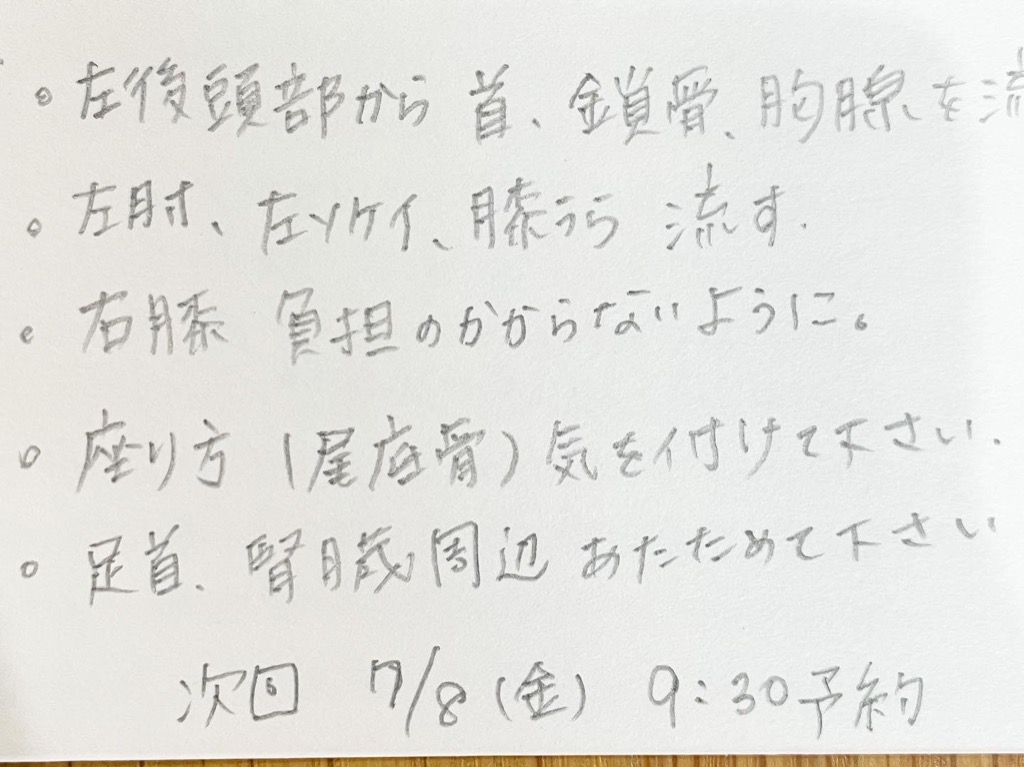 。左後頭部から 首、鎖骨、胸腺を流
。左肘、左ソケイ、膝うら 流す.
。右膝 負担のかからないように。
。座り方 (尾底骨) 気を付けて下さい.
。足首. 腎臓周辺 あたためて下さい
次回 7/8 (金) 9:30予約